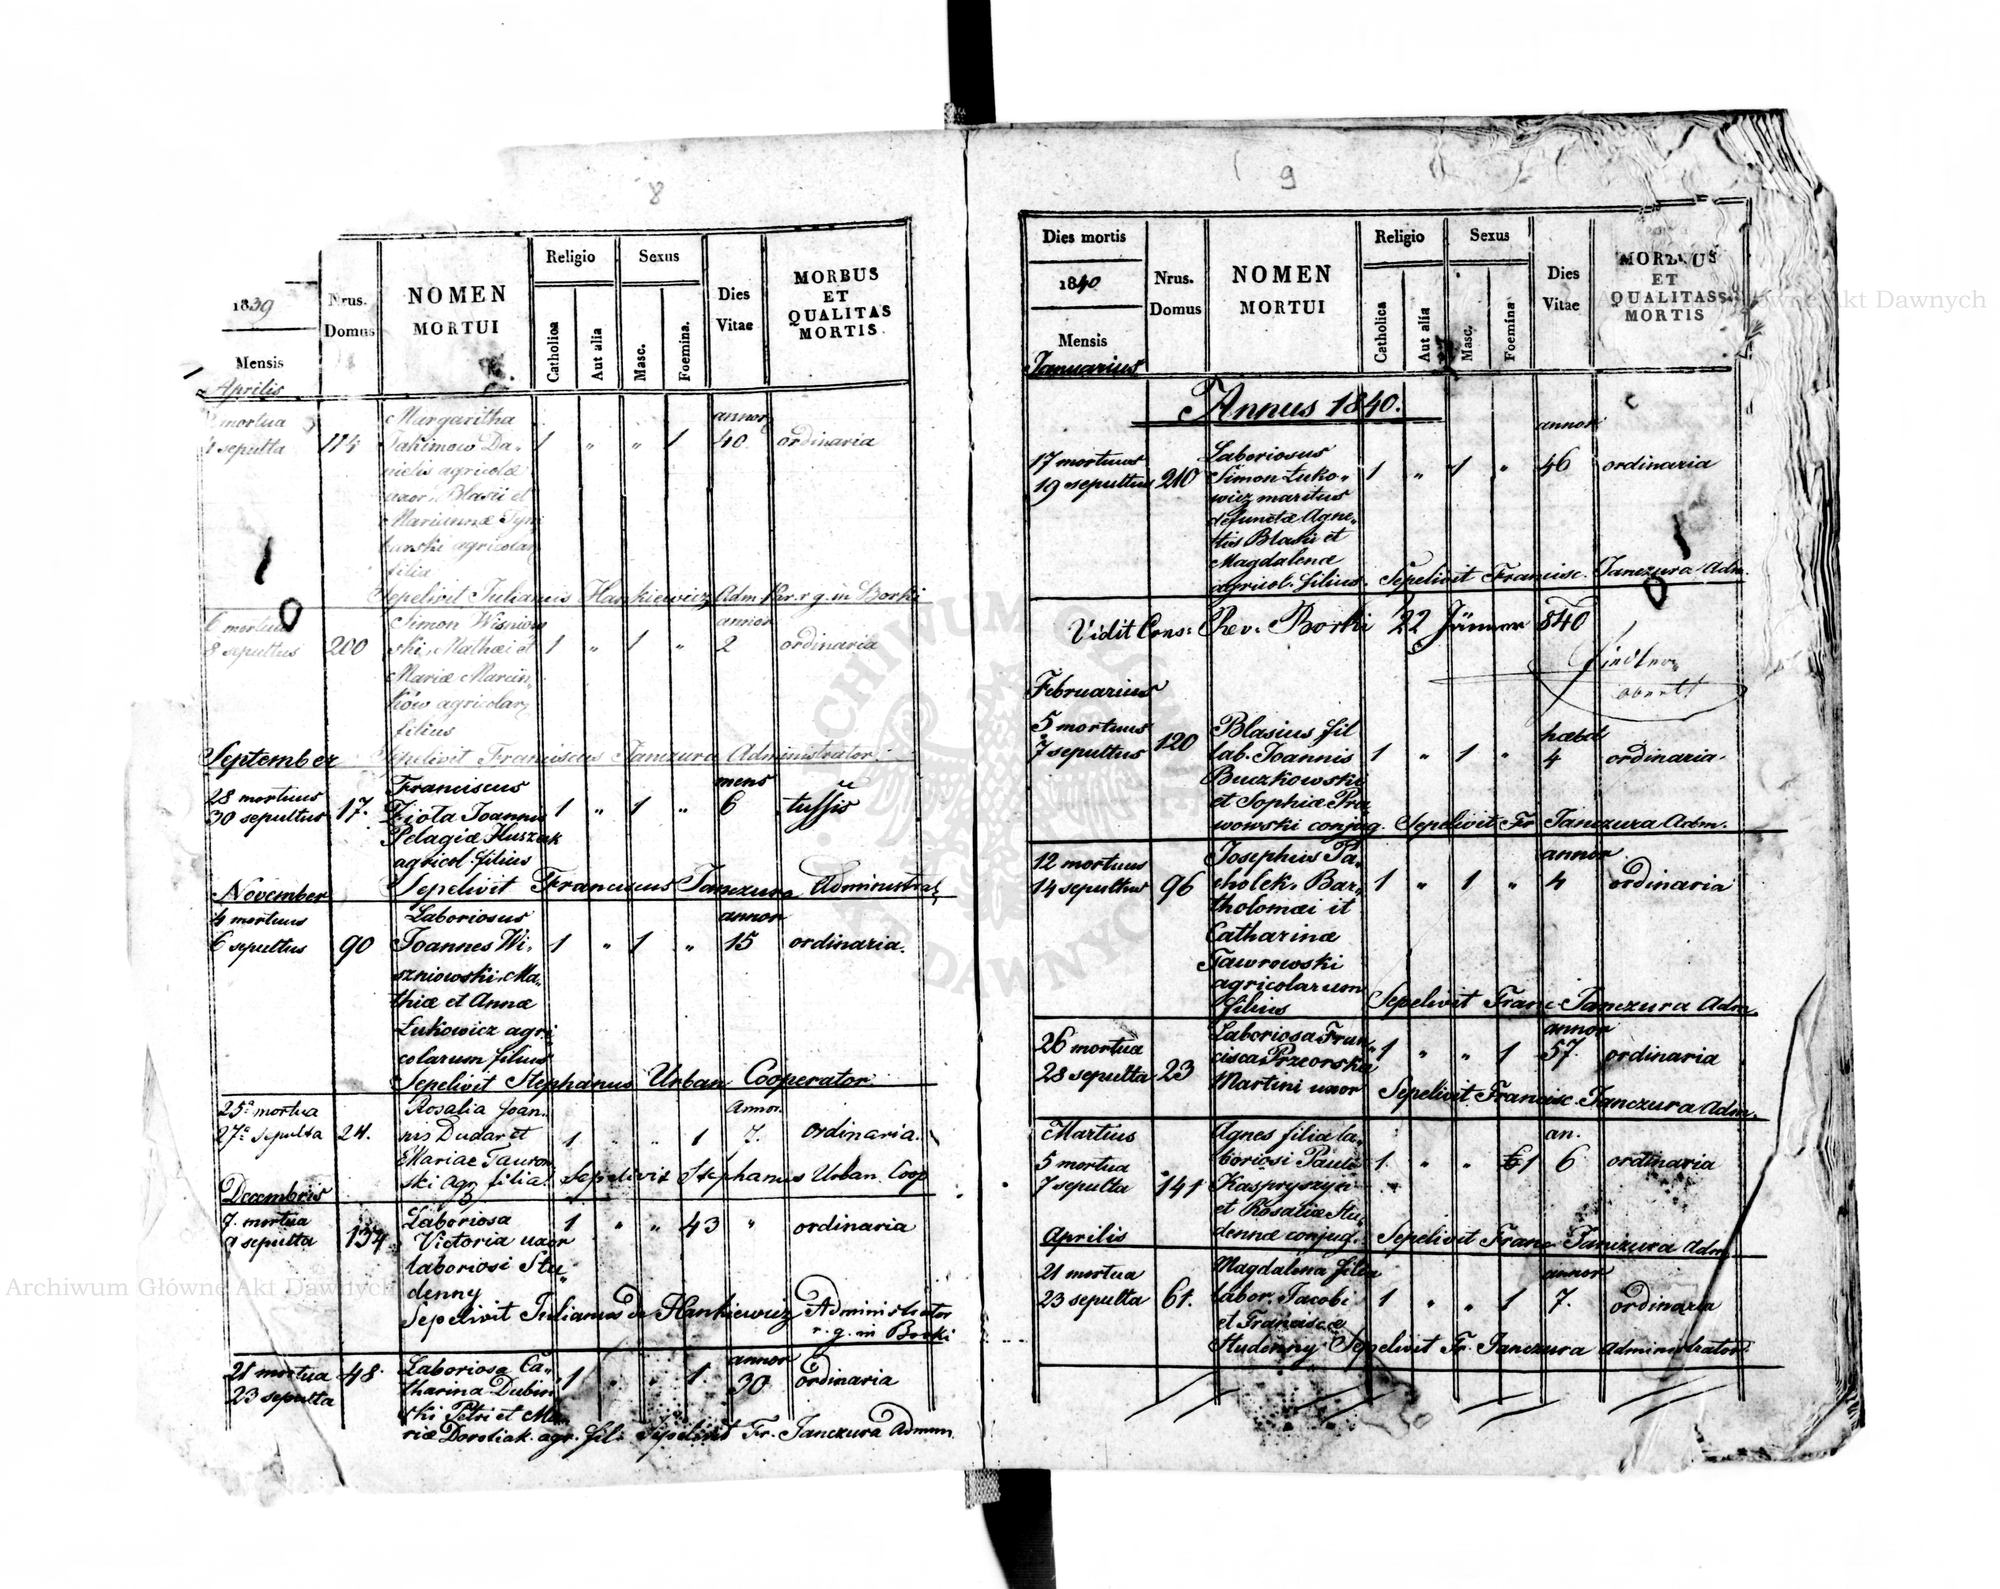 8
1839
Mensis
Aprilis
Nrus. Domus
NOMEN
MORTUI
Religio
Catholica
Aut alia
Sexus
Masc.
Foemina.
Dies
Vitae
MORBUS
ET
QUALITAS
MORTIS.
mortua
4 sepulta 114
Margaritha
Jakimow Da-
nielis agricolæ
uxor, Blasii et
Mariannæ
agricolar
filia
1 „ „ 1
annor
40
ordinaria
Sepelivit Julianus Hankiewicz Adm. Par. r. g. in Borki
6 mortuus
8 sepultus 200
Simon Wisniow
ski, Mathæi et
Mariæ Marcin-
ków agricolar
filius
1 „ 1 „
annor
2
ordinaria
September Sepelivit Franciscus Janczura Administrator.
28 mortuus
30 sepultus 17.
Franciscus
Ziota Joannis
Pelagiæ Huszak
agricol. filius
1 „ 1 „
mens
6
tussis
November Sepelivit Franciscus Janczura Administrat
4 mortuus
6 sepultus 90
Laboriosus
Joannes Wi-
szniowski, Ma-
thiæ et Annæ
Łukowicz agri
colarum filius
1 „ 1 „
annor
15
ordinaria.
Sepelivit Stephanus Urban Cooperator
25a mortua
27a sepulta 24.
Rosalia Joan-
nis Dudar et
Mariae Tauron
ski agr. filia
1 „ „ 1
Annor.
7.
ordinaria.
Sepelivit Stephanus Urban Coop
Decembris
7. mortua
9 sepulta 134
Laboriosa
Victoria uxor
laboriosi Stu-
denny
1 „ „ 43 „
ordinaria
Sepelivit Julianus de Hankiewicz Administrator
r. g. in Borki
21 mortua 48.
23 sepulta
Laboriosa Ca-
tharina Dubin
ski Petri et Ma
riæ Dorotiak. agr. fil.
1 „ „ 1
annor
30
ordinaria
Sepelivit Fr. Janczura Admin.
9
Dies mortis
1840
Mensis
Januarius
Nrus.
Domus
NOMEN
MORTUI
Religio
Catholica
Aut alia
Sexus
Masc.
Foemina
Dies
Vitae
MORBUS
ET
QUALITAS
MORTIS
Annus 1840.
17 mortuus
19 sepultus 210
Laboriosus
Simon Łuko-
wicz maritus
defunctæ Agne-
tis Blasii et
Magdalenæ
agricol. filius.
1 „ 1 „
annor
46
ordinaria
Sepelivit Francisc. Janczura Adm.
Vidit Cons: Rev. Borki 22 Jänner 840
Fiedler
Februarius
5 mortuus
7 sepultus 120
Blasius fil
lab. Joannis
Buczkowski
et Sophiæ Pra
wowski conjug.
1 „ 1 „
hæbd
4
ordinaria.
Sepelivit Fr. Janczura Adm.
12 mortuus
14 sepultus 96
Josephus Pa-
cholek, Bar-
tholomæi it
Catharinæ
Tawrowski
agricolarum
filius
1 „ 1 „
annor
4
ordinaria
Sepelivit Franc. Janczura Adm.
26 mortua
28 sepulta 23
Laboriosa Fran-
cisca Przeorska
Martini uxor
1 „ „ 1
annor
57.
ordinaria
Sepelivit Francisc. Janczura Adm.
Martius
5 mortua
7 sepulta 141
Agnes filia la-
boriosi Pauli
Kaspryszyn
et Rosaliæ Stu-
dennæ conjug.
1. „ „ 1
an.
6
ordinaria
Sepelivit Franc. Janczura Adm.
Aprilis
21 mortua
23 sepulta 61.
Magdalena filia
labor. Jacobi
et Franciscæ
Studenny
1 „ „ 1
annor
7.
ordinaria
Sepelivit Fr. Janczura Administrator.
Archiwum Główne Akt Dawnych
Archiwum Główne Akt Dawnych
ARCHIWUM GŁÓWNE AKT DAWNYCH